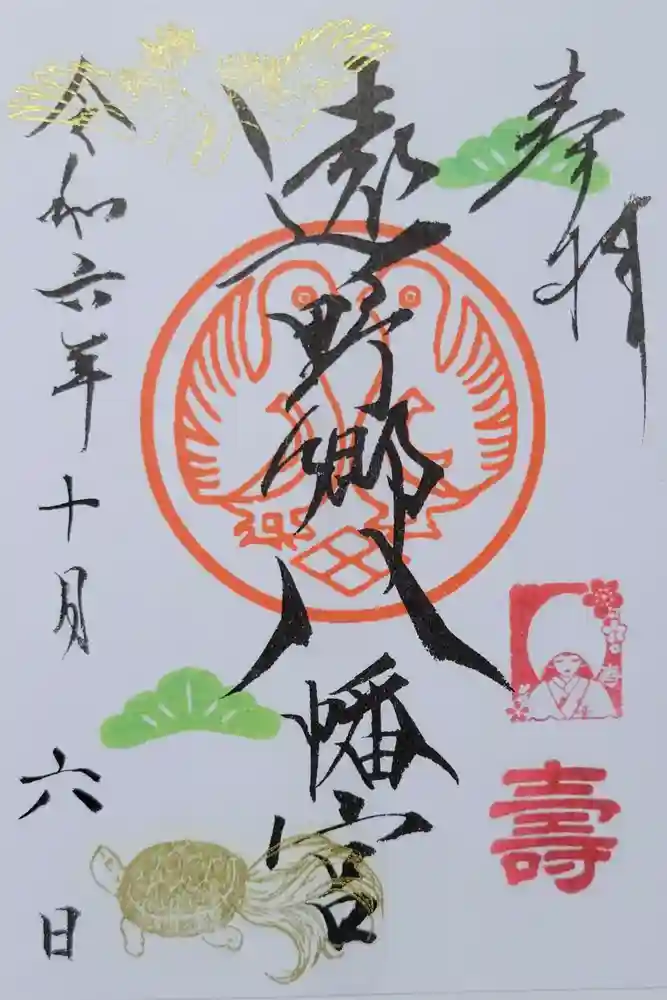 奉拝
遠野郷八幡宮
壽
令和六年十月六日